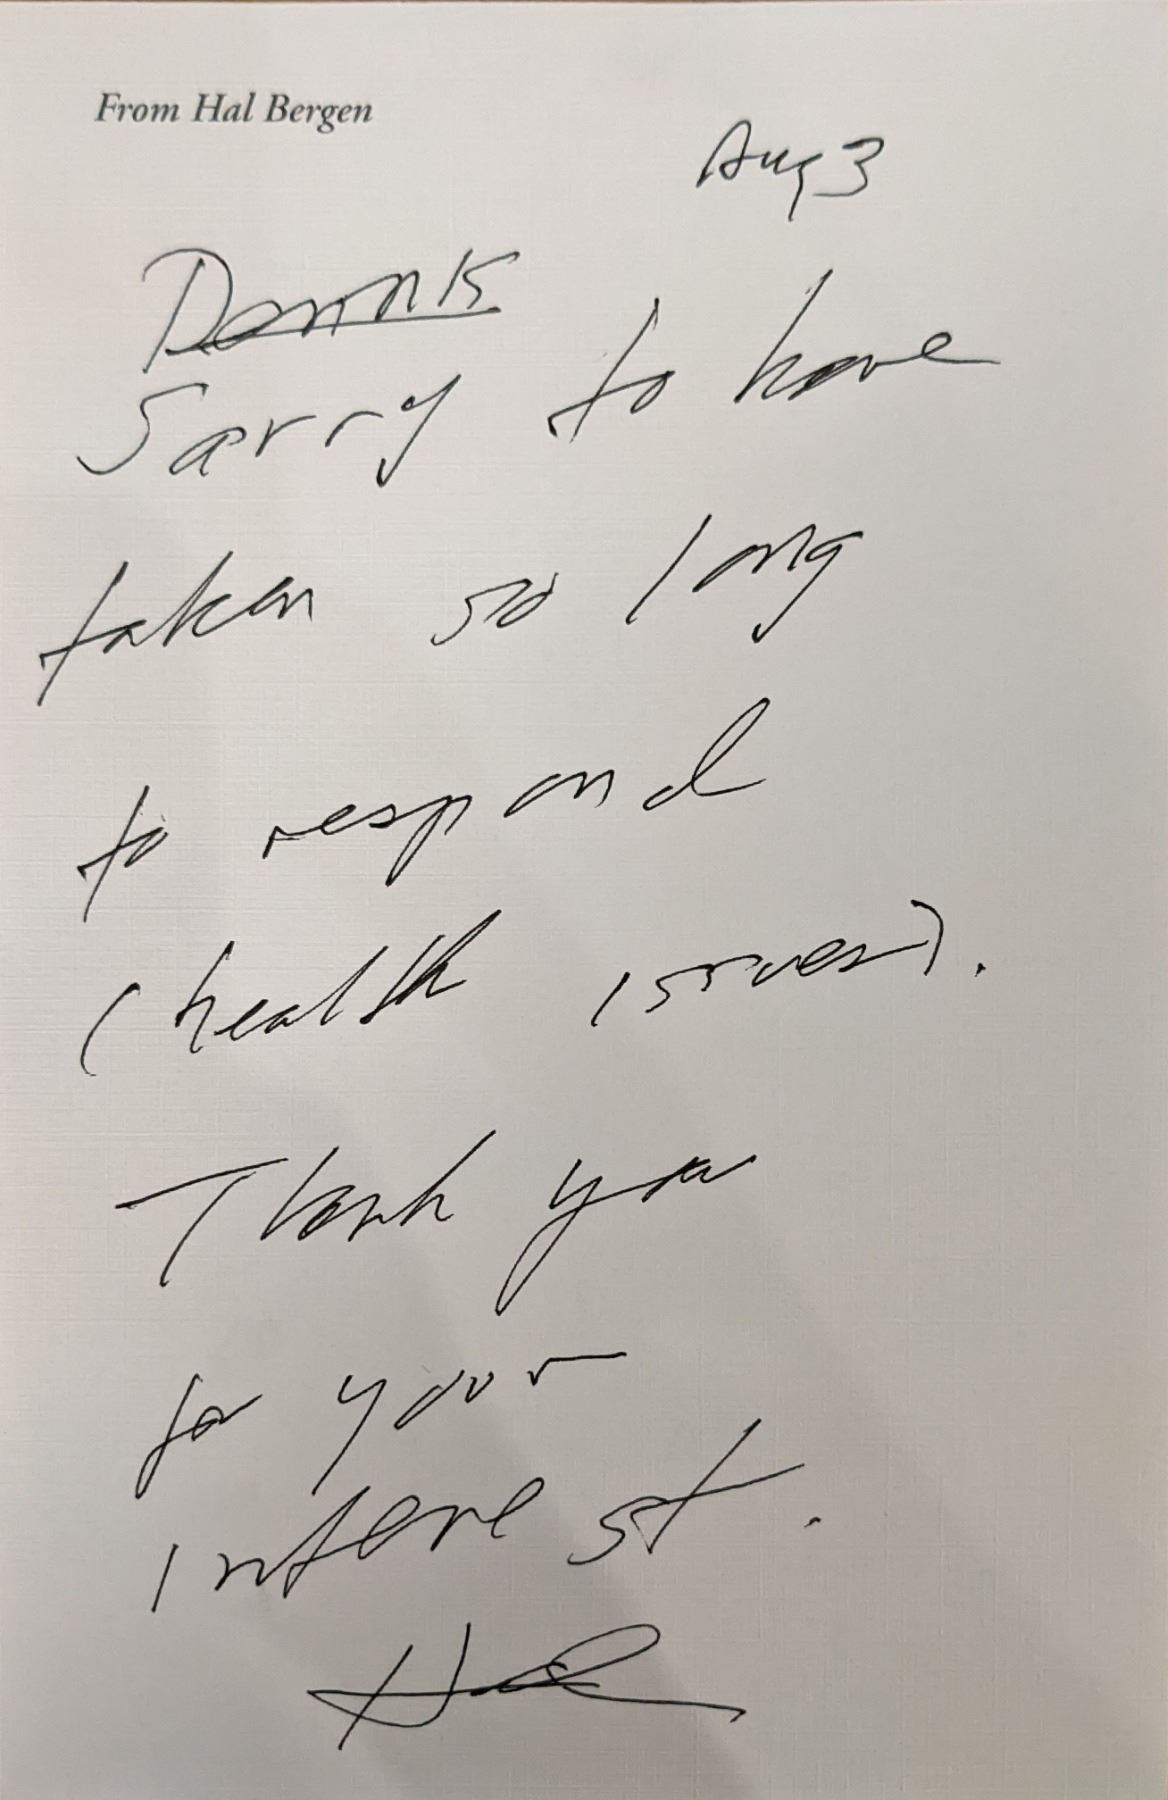 From Hal Bergen
Aug 3
Dennis
Sorry to have
taken so long
to respond
(health issues).
Thank you
for your
interest.
Hal